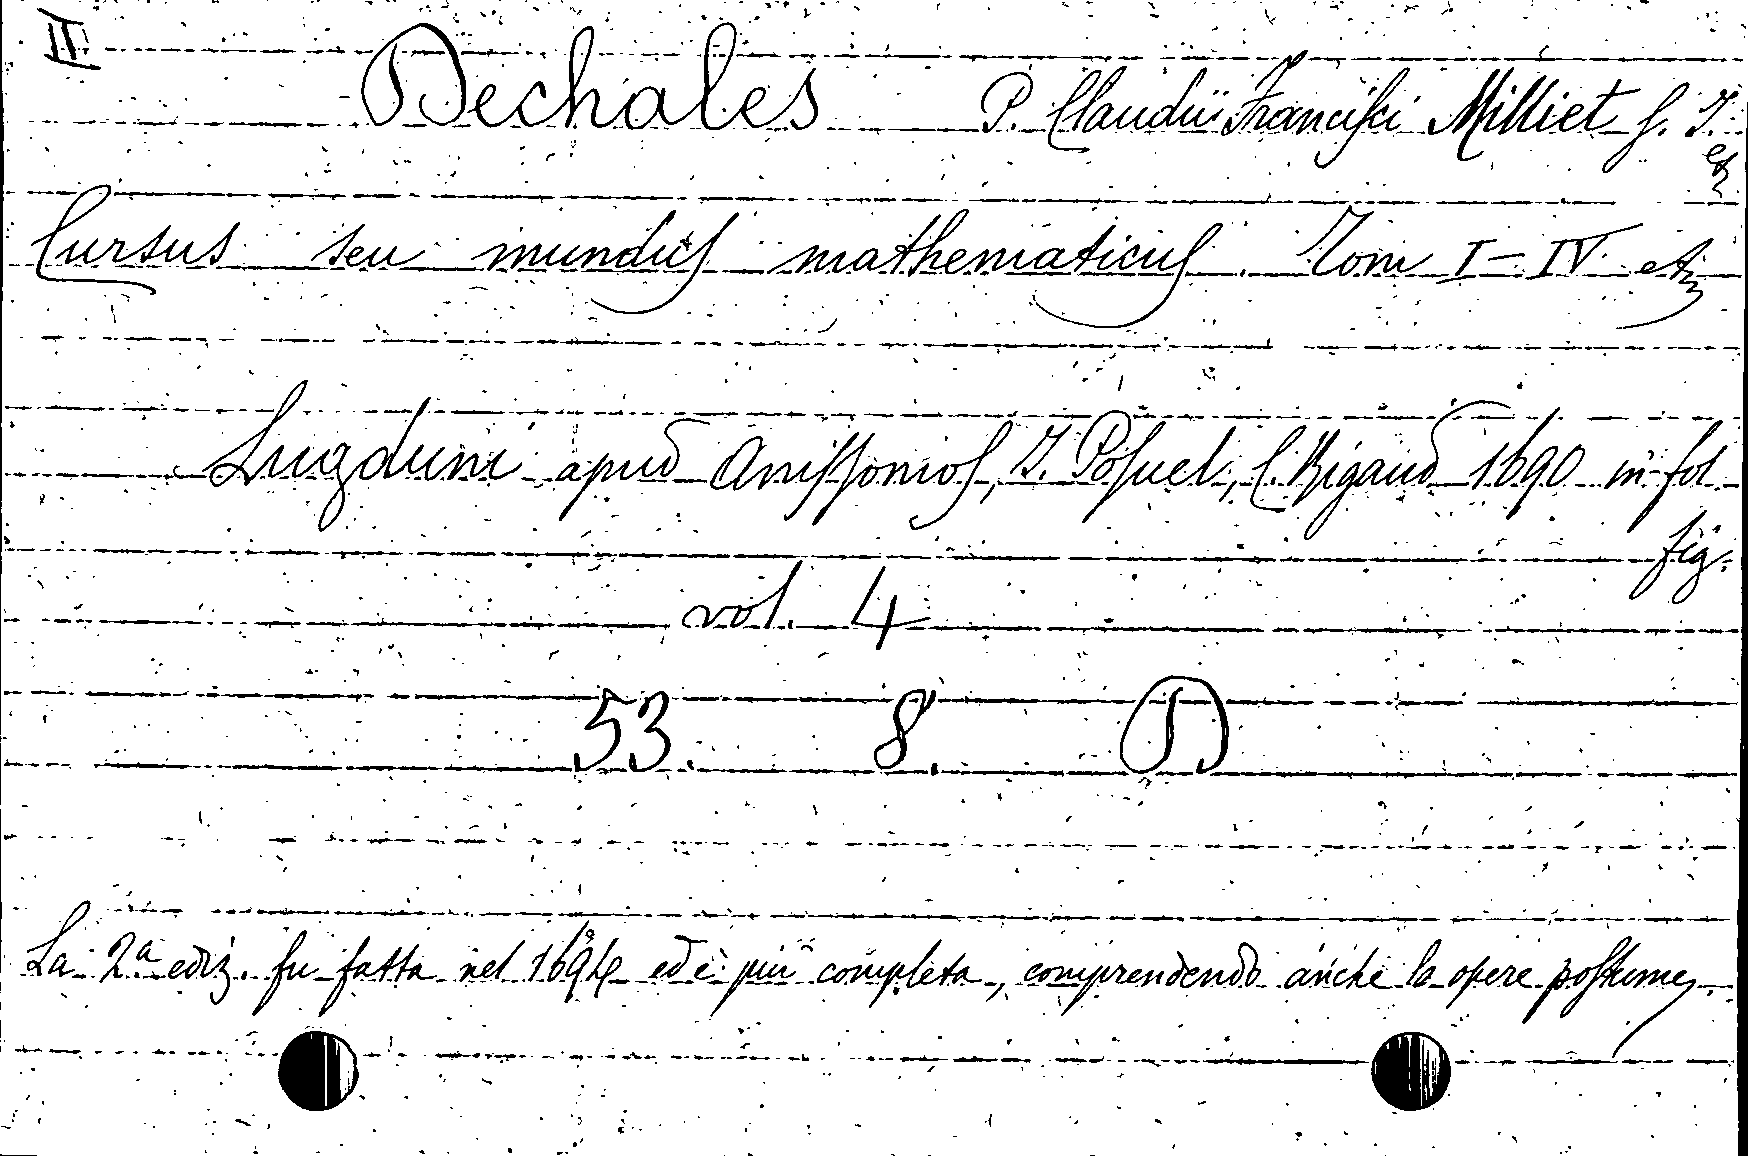 II
Dechales P. Claudii Francisci Milliet S. J.
etz
Cursus seu mundus mathematicus. Tom I-IV. etz
Lugduni apud Anissonios, J. Posuel, C. Rigaud 1690 in fol
fig.
vol. 4
53. 8. D
La 2a ediz. fu fatta nel ed è più completa, comprendendo anche le opere postume.